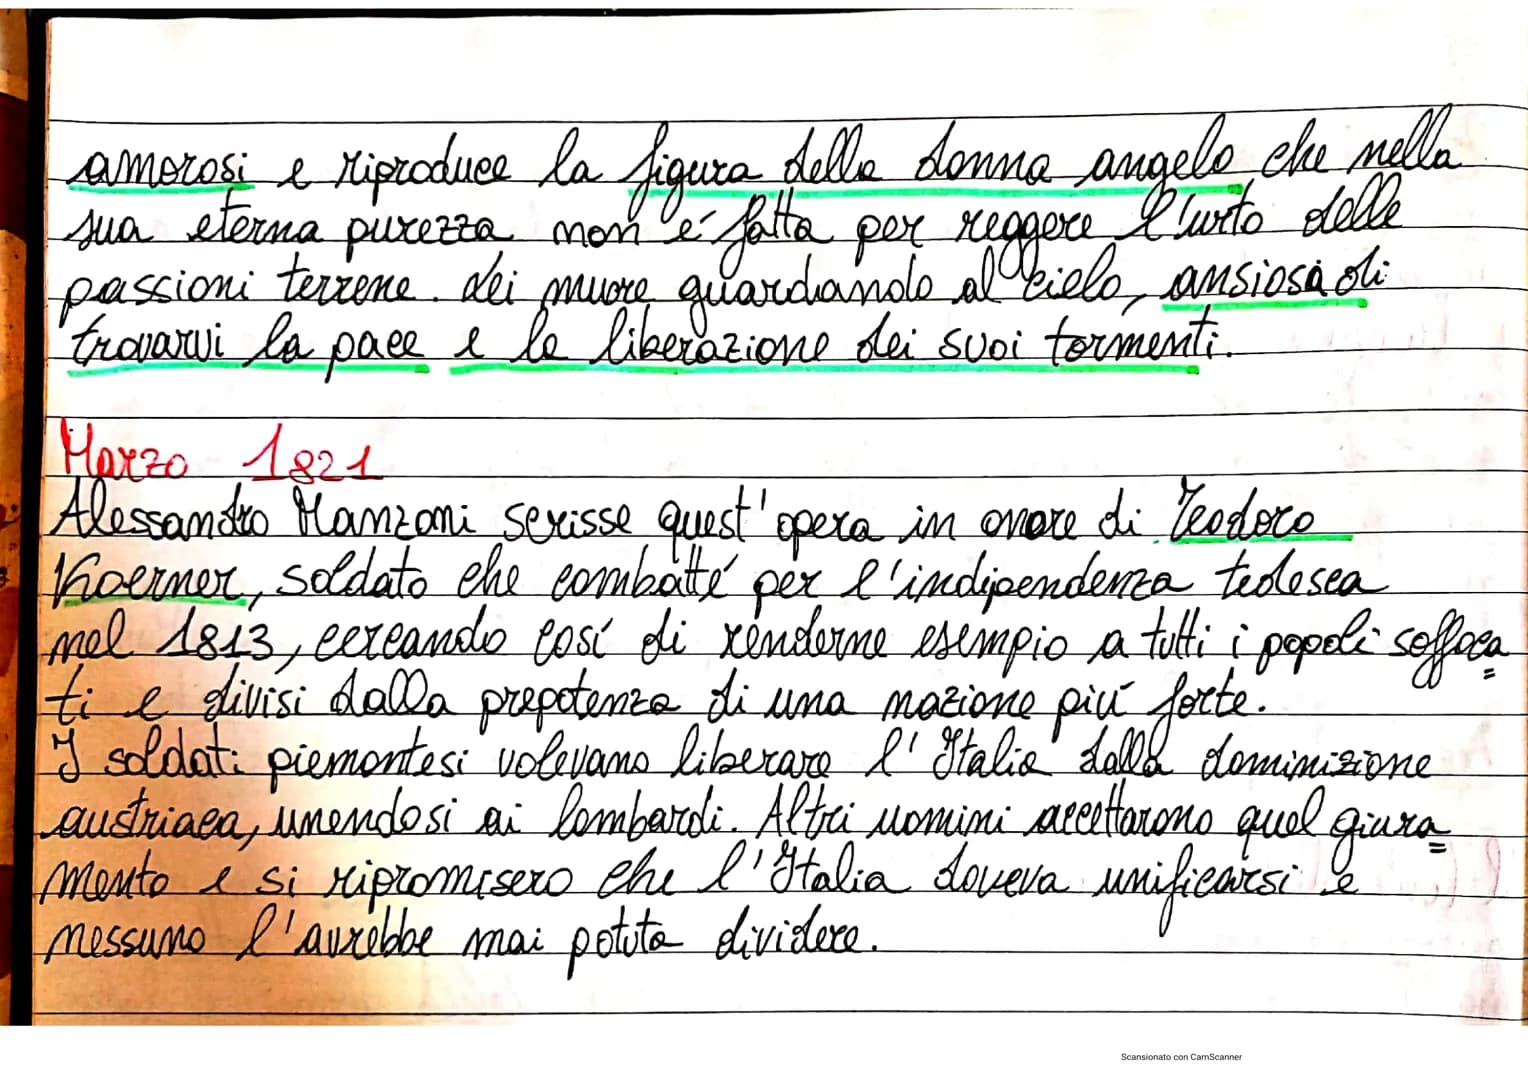 amorosi e riproduce la figura della donna angelo che nella
sua eterna purezza non é fatta per reggere l'urto delle
passioni terrene. Lei muore guardando al cielo, ansiosa di
trovarvi la pace e la liberazione dei suoi tormenti.
Marzo 1821
Alessandro Manzoni scrisse quest'opera in onore di Teodoro
Koerner, soldato che combatté per l'indipendenza tedesca
nel 1813, cercando cosí di renderne esempio a tutti i popoli soffoca
ti e divisi dalla prepotenza di una nazione piú forte.
I soldati piemontesi volevano liberare l'Italia dalla dominizione
austriaca, unendosi ai lombardi. Altri uomini accettarono quel giura=
mento e si ripromisero che l'Italia doveva unificarsi e
nessuno l'avrebbe mai potuta dividere.
Scansionato con CamScanner